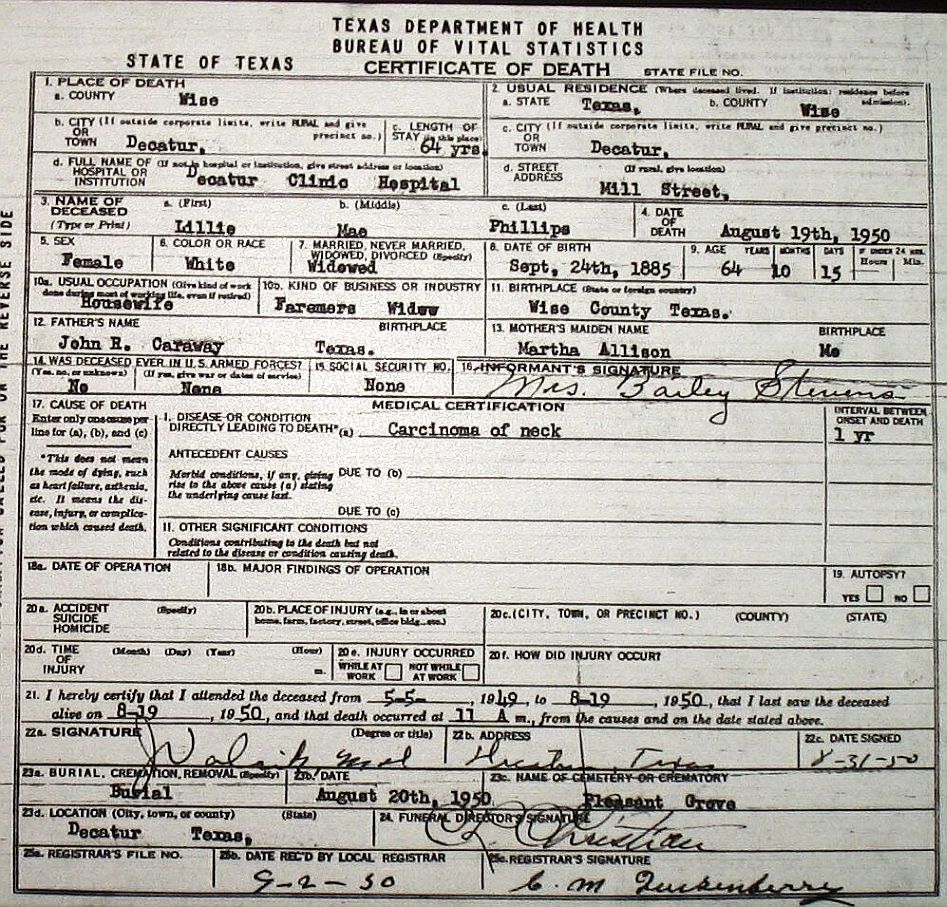 TEXAS DEPARTMENT OF HEALTH
BUREAU OF VITAL STATISTICS
STATE OF TEXAS
CERTIFICATE OF DEATH
STATE FILE NO.
1. PLACE OF DEATH
a. COUNTY Wise
2. USUAL RESIDENCE (Where deceased lived. If institution: residence before admission).
a. STATE Texas, b. COUNTY Wise
b. CITY (If outside corporate limits, write RURAL and give precinct no.)
OR
TOWN Decatur,
c. LENGTH OF
STAY (in this place)
64 yrs.
c. CITY (If outside corporate limits, write RURAL and give precinct no.)
OR
TOWN Decatur,
d. FULL NAME OF (If not in hospital or institution, give street address or location)
HOSPITAL OR
INSTITUTION Decatur Clinic Hospital
d. STREET (If rural, give location)
ADDRESS Mill Street,
3. NAME OF
DECEASED
(Type or Print)
a. (First) Lillie
b. (Middle) Mae
c. (Last) Phillips
4. DATE
OF
DEATH August 19th, 1950
5. SEX
Female
6. COLOR OR RACE
White
7. MARRIED, NEVER MARRIED,
WIDOWED, DIVORCED (Specify)
Widowed
8. DATE OF BIRTH
Sept, 24th, 1885
9. AGE YEARS MONTHS DAYS IF UNDER 24 HRS.
Hours Min.
64 10 15
10a. USUAL OCCUPATION (Give kind of work
done during most of working life, even if retired)
Housewife
10b. KIND OF BUSINESS OR INDUSTRY
Faremers Widow
11. BIRTHPLACE (State or foreign country)
Wise County Texas.
12. FATHER'S NAME BIRTHPLACE
John R. Caraway Texas.
13. MOTHER'S MAIDEN NAME BIRTHPLACE
Martha Allison Mo
14. WAS DECEASED EVER IN U.S. ARMED FORCES?
(Yes, no, or unknown) (If yes, give war or dates of service)
No None
15. SOCIAL SECURITY NO.
None
16. INFORMANT'S SIGNATURE
Mrs. Bailey Stevens
17. CAUSE OF DEATH
Enter only one cause per
line for (a), (b), and (c)
*This does not mean
the mode of dying, such
as heart failure, asthenia,
etc. It means the dis-
ease, injury, or complica-
tion which caused death.
MEDICAL CERTIFICATION
I. DISEASE OR CONDITION
DIRECTLY LEADING TO DEATH* (a) Carcinoma of neck
INTERVAL BETWEEN
ONSET AND DEATH
1 yr
ANTECEDENT CAUSES
Morbid conditions, if any, giving
rise to the above cause (a) stating
the underlying cause last.
DUE TO (b)
DUE TO (c)
II. OTHER SIGNIFICANT CONDITIONS
Conditions contributing to the death but not
related to the disease or condition causing death.
18a. DATE OF OPERATION
18b. MAJOR FINDINGS OF OPERATION
19. AUTOPSY?
YES NO
20a. ACCIDENT (Specify)
SUICIDE
HOMICIDE
20b. PLACE OF INJURY (e.g., in or about
home, farm, factory, street, office bldg., etc.)
20c. (CITY, TOWN, OR PRECINCT NO.) (COUNTY) (STATE)
20d. TIME (Month) (Day) (Year) (Hour)
OF
INJURY m.
20e. INJURY OCCURRED
WHILE AT
WORK
NOT WHILE
AT WORK
20f. HOW DID INJURY OCCUR?
21. I hereby certify that I attended the deceased from 5-5- , 1949 to 8-19 1950, that I last saw the deceased
alive on 8-19 , 1950, and that death occurred at 11 A m., from the causes and on the date stated above.
22a. SIGNATURE (Degree or title)
22b. ADDRESS
Texas
22c. DATE SIGNED
8-31-50
23a. BURIAL, CREMATION, REMOVAL (Specify)
Burial
23b. DATE
August 20th, 1950
23c. NAME OF CEMETERY OR CREMATORY
Pleasant Grove
23d. LOCATION (City, town, or county) (State)
Decatur Texas,
24. FUNERAL DIRECTOR'S SIGNATURE
Christian
25a. REGISTRAR'S FILE NO.
25b. DATE REC'D BY LOCAL REGISTRAR
9-2-50
25c. REGISTRAR'S SIGNATURE
C. M.
REVERSE SIDE